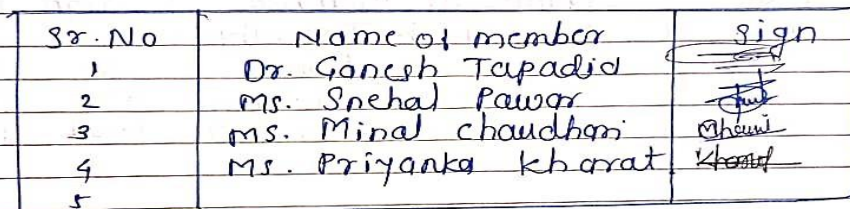 Sr. No Name of member Sign
1 Dr. Ganesh Tapadia
2 Ms. Snehal Pawar
3 Ms. Minal Chaudhari
4 Ms. Priyanka Kharat Kharat
5